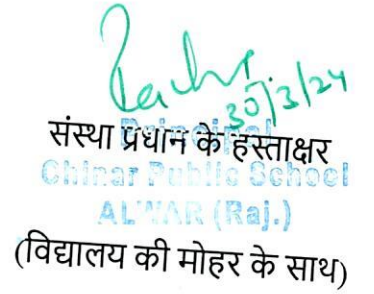 30/3/24
संस्था प्रधान के हस्ताक्षर
Principal
Chinar Public School
ALWAR (Raj.)
(विद्यालय की मोहर के साथ)